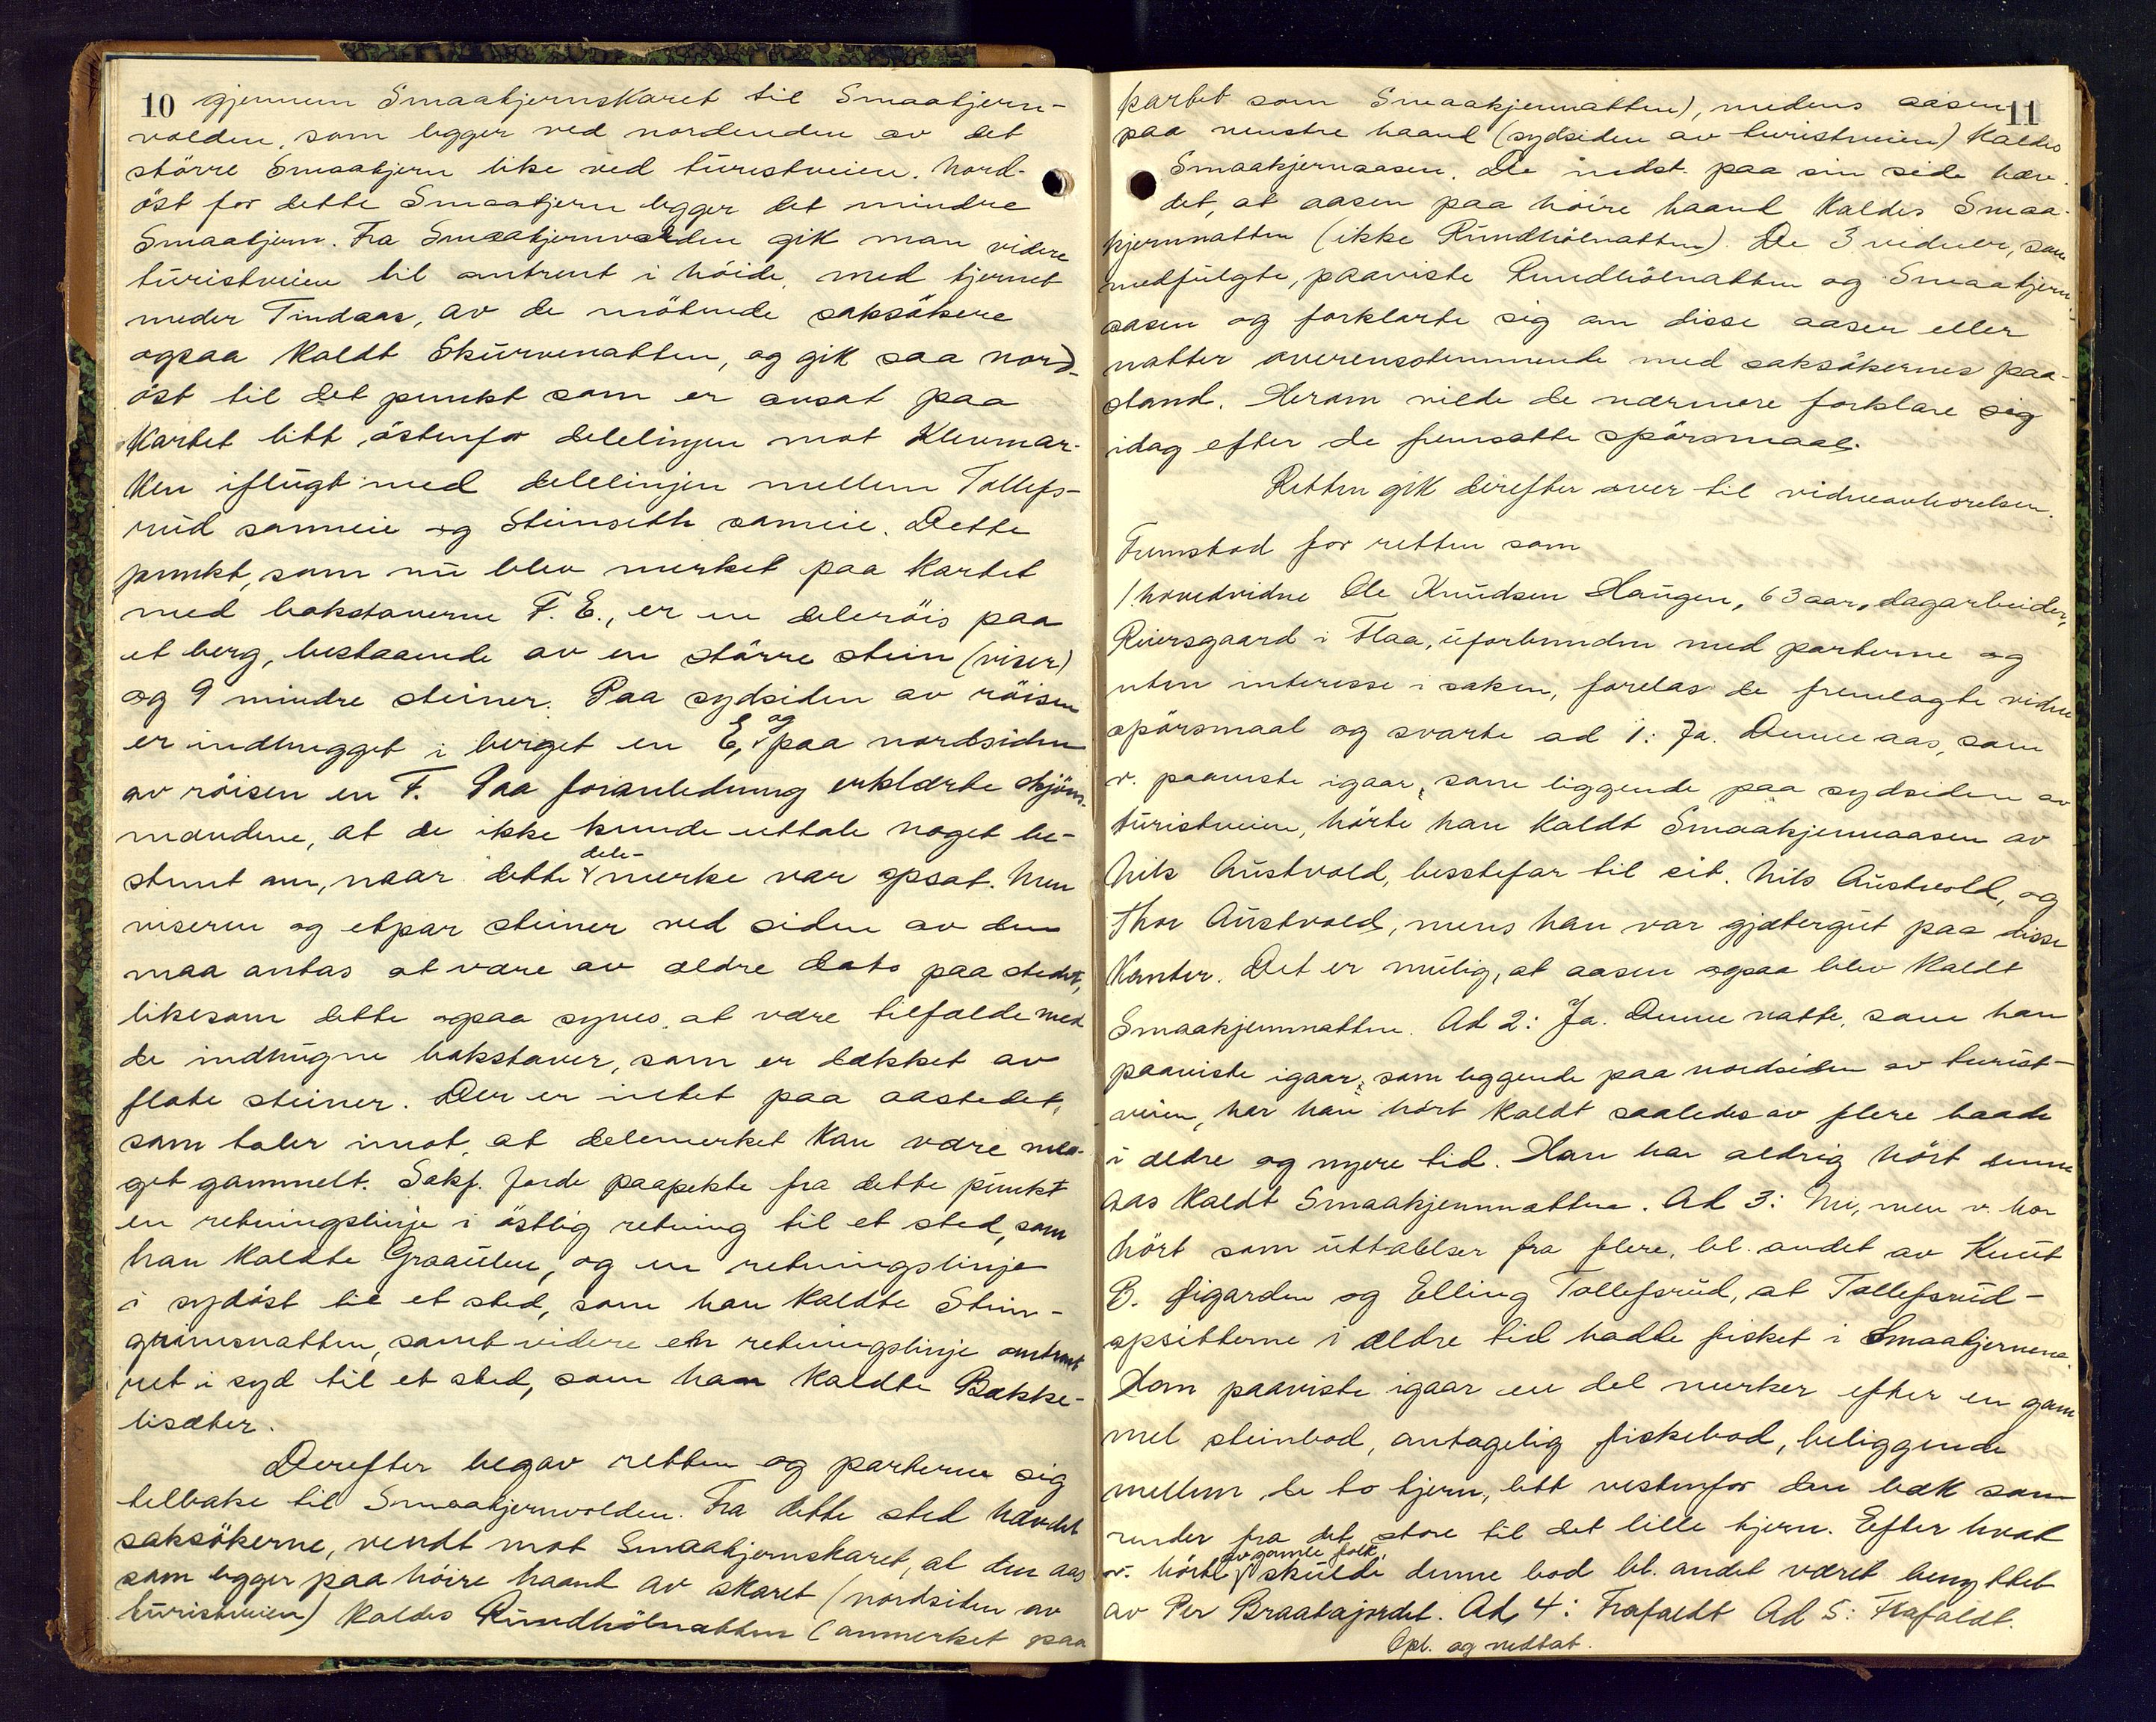 10
gjennem Smaakjernskaret til Smaatjern-
volden, som ligger ved nordenden av det
större Smaatjern like ved turistveien. Nord-
öst for dette Smaatjern ligger det mindre
Smaatjern. Fra Smaatjernvolden gik man videre
turistveien til omtrent i höide med tjernet
meder Tindaas, av de mötende saksökere
ogsaa kaldt Skurvenatten, og gik saa nord-
öst til det punkt som er avsat paa
kartet litt östenfor delelinjen mot Klevmar-
ken iflugt med delelinjen mellem Tollefs-
rud sameie og Steinseth sameie. Dette
punkt, som nu blev merket paa kartet
med bokstaverne F. E., er en deleröis paa
et berg, bestaaende av en större stein (viser)
og 9 mindre steiner. Paa sydsiden av röisen
er indhugget i berget en E, og paa nordsiden
av röisen en F. Paa foranledning erklærte skjöns-
mændene, at de ikke kunde uttale noget be-
stemt om, naar dette dele-merke var opsat. Men
viseren og etpar steiner ved siden av den
maa antas at være av ældre dato paa stedet,
likesom dette ogsaa synes at være tilfælde med
de indhugne bokstaver, som er dækket av
flate steiner. Der er intet paa aastedet,
som taler imot, at delemerket kan være me-
get gammelt. Sakf. Jorde paapekte fra dette punkt
en retningslinje i östlig retning til et sted, som
han kaldte Graaulen, og en retningslinje
i sydöst til et sted, som han kaldte Stein-
grimsnatten, samt videre en retningslinje omtrent
ret i syd til et sted, som han kaldte Bække-
lisæter.
Derefter begav retten og parterne sig
tilbake til Smaatjernvolden. Fra dette sted hævdet
saksökerne, vendt mot Smaatjernskaret, at den aas
som ligger paa höire haand av skaret (nordsiden av
turistveien) kaldes Rundhölnatten (anmerket paa
11
kartet som Smaakjernnatten), medens aasen
paa venstre haand (sydsiden av turistveien) kaldes
Smaakjernaasen. De indst. paa sin side hæv-
det, at aasen paa höire haand kaldes Smaa-
kjernnatten (ikke Rundhölnatten). De 3 vidner, som
medfulgte, paaviste Rundhölnatten og Smaatjern-
aasen og forklarte sig om disse aaser eller
natter overensstemmende med saksökernes paa-
stand. Herom vilde de nærmere forklare sig
idag efter de fremsatte spörsmaal.
Retten gik derefter over til vidneavhörelsen.
Fremstod for retten som
1. hovedvidne Ole Knudsen Haugen, 63 aar, dagarbeider,
Reiersgaard i Flaa, uforbunden med parterne og
uten interesse i saken, forelas de fremlagte vidne
spörsmaal og svarte ad 1: Ja. Denne aas, som
v. paaviste igaar, som liggende paa sydsiden av
turistveien, hörte han kaldt Smaakjernaasen av
Nils Austvold, besstefar til cit. Nils Austvold, og
Thor Austvold, mens han var gjætergut paa disse
kanter. Det er mulig, at aasen ogsaa blev kaldt
Smaakjernnatten. Ad 2: Ja. Denne natte, som han
paaviste igaar, som liggende paa nordsiden av turist-
veien, har han hört kaldt saaledes av flere baade
i ældre og nyere tid. Han har aldrig hört denne
aas kaldt Smaakjernnatten. Ad 3: Nei, men v. har
hört som uttalelser fra flere, bl. andet av Knut
B. Sigarden og Elling Tollefsrud, at Tollefsrud-
opsitterne i ældre tid hadde fisket i Smaatjernene.
Han paaviste igaar en del merker efter en gam
mel steinbod, antagelig fiskebod, beliggende
mellem de to tjern, litt vestenfor den bæk som
render fra det store til det lille tjern. Efter hvad
v. hörte av gamle folk, skulde denne bod bl. andet været benyttet
av Per Braatajordet. Ad 4: Frafaldt Ad 5: Frafaldt.
Opl. og vedtat.